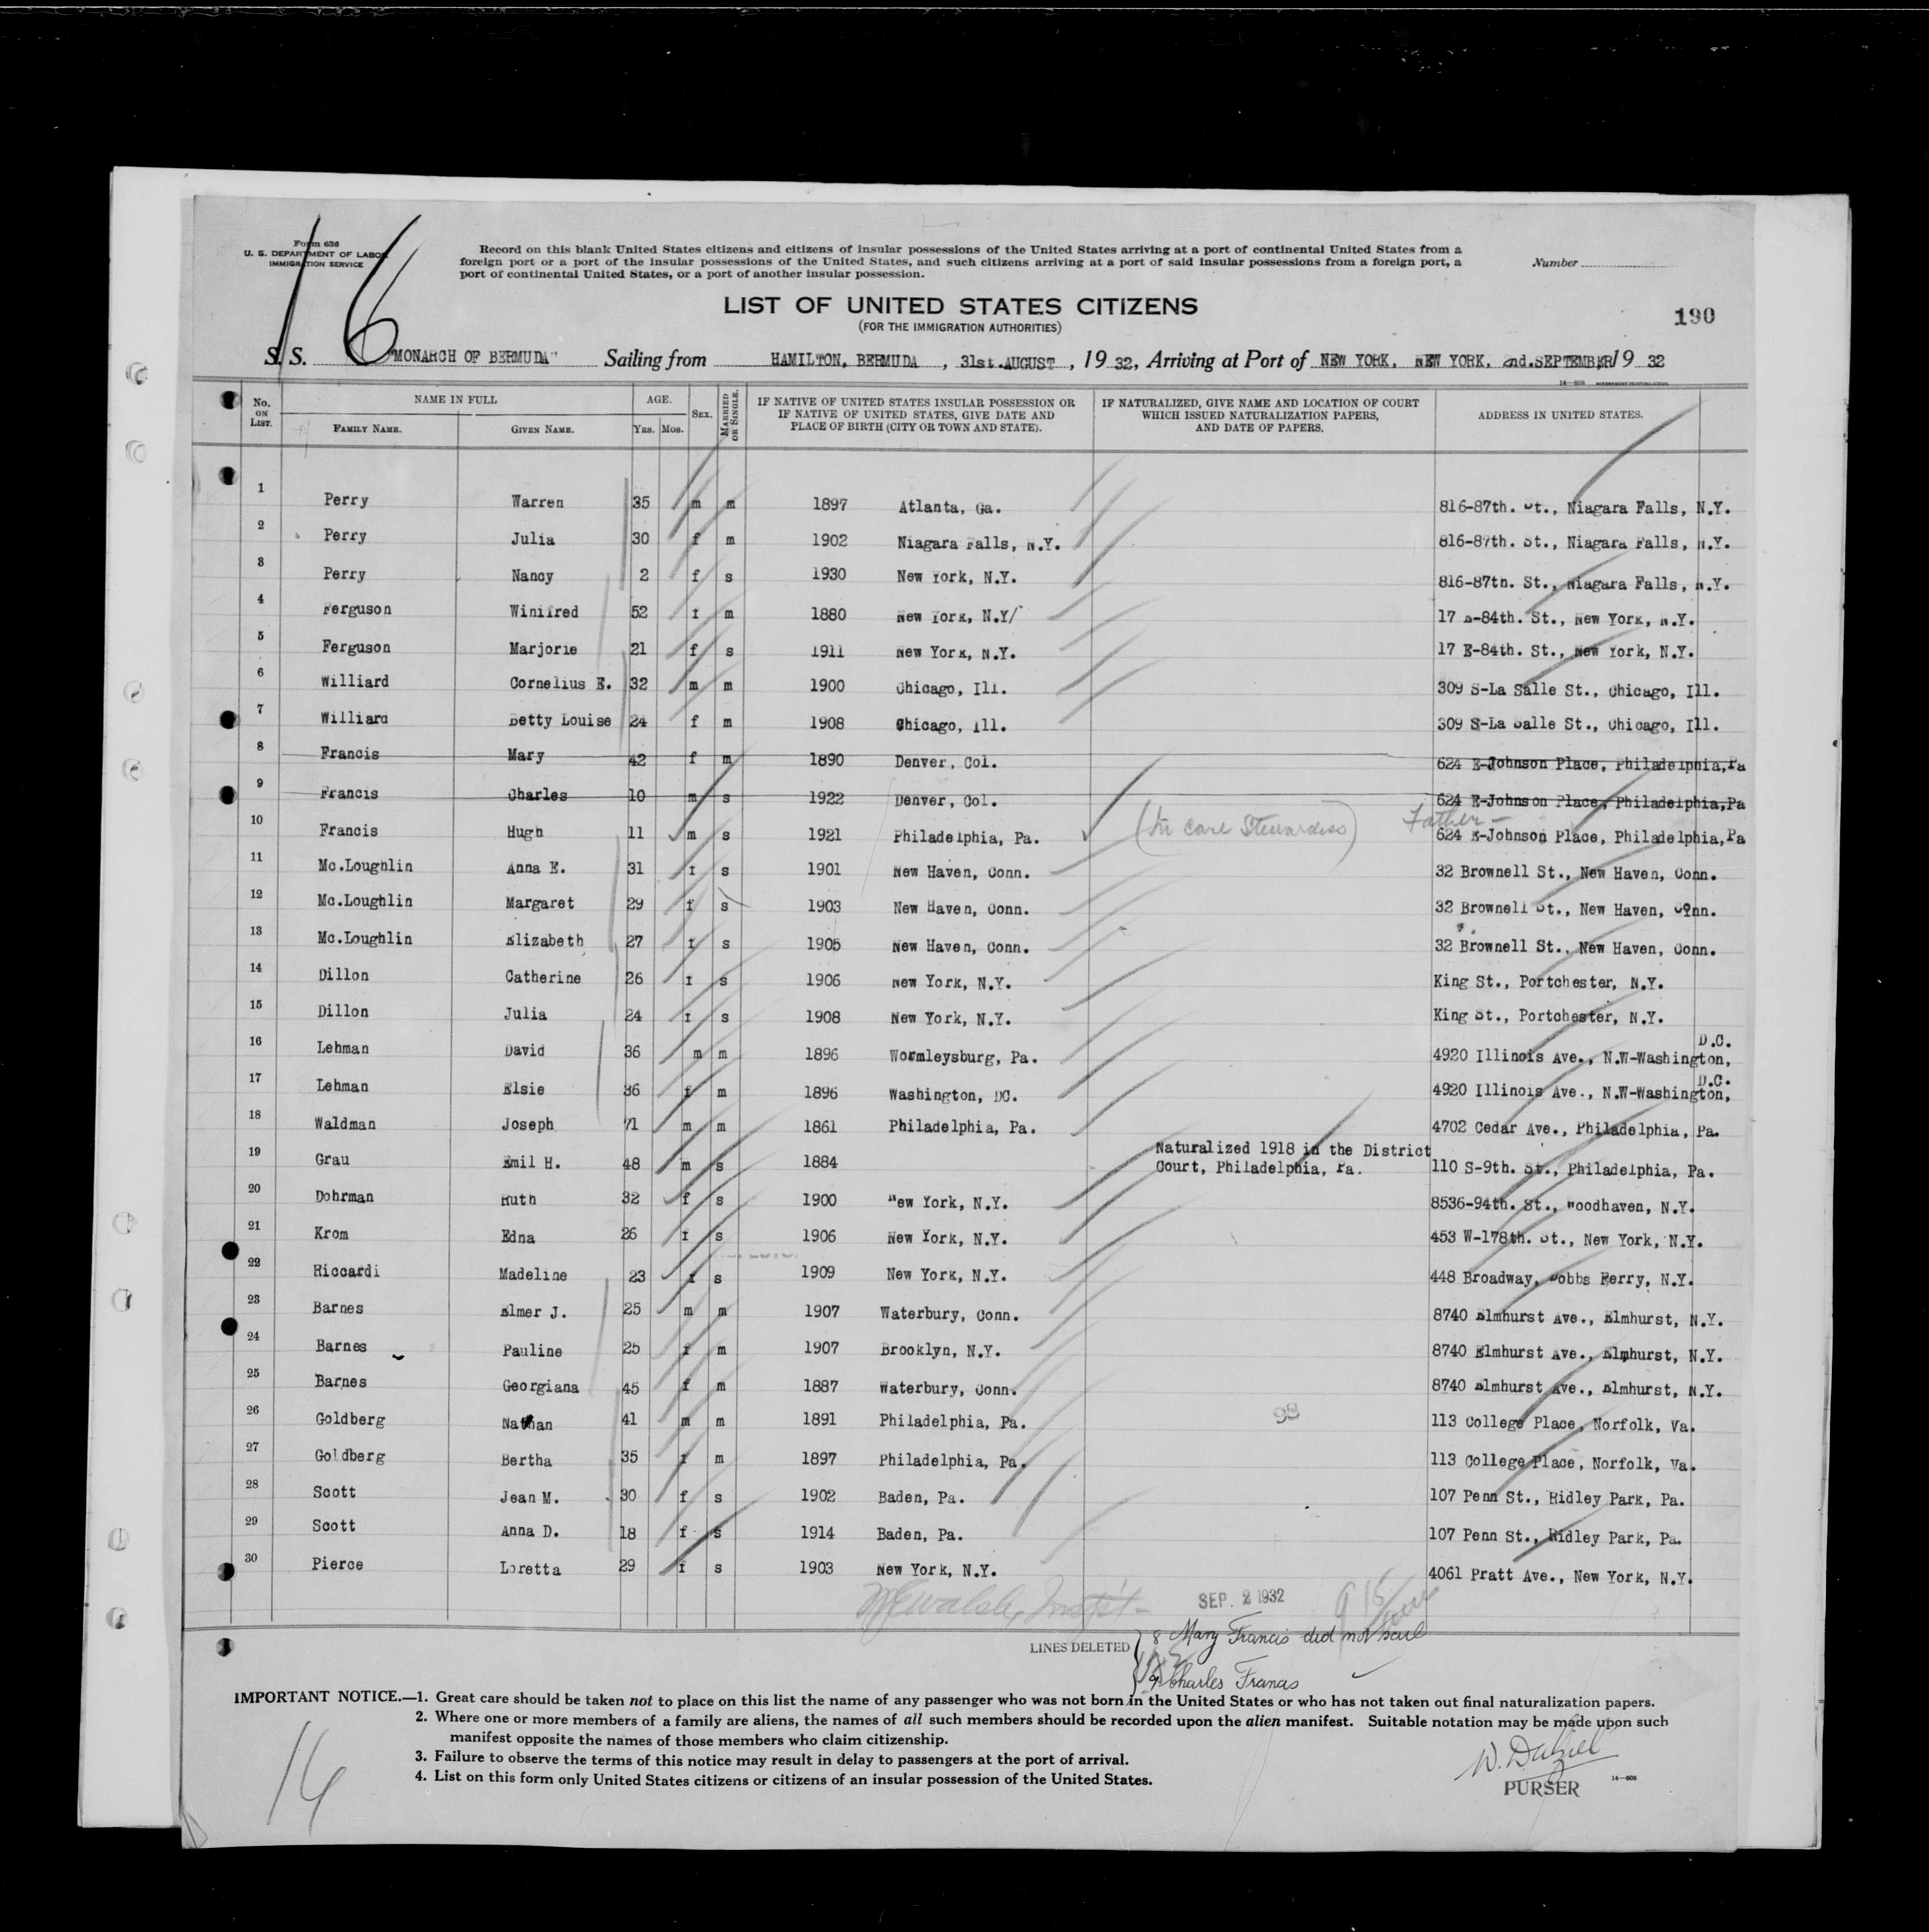 Form 636
U. S. DEPARTMENT OF LABOR
IMMIGRATION SERVICE
16
Record on this blank United States citizens and citizens of insular possessions of the United States arriving at a port of continental United States from a
foreign port or a port of the insular possessions of the United States, and such citizens arriving at a port of said insular possessions from a foreign port, a
port of continental United States, or a port of another insular possession.
Number
LIST OF UNITED STATES CITIZENS
(FOR THE IMMIGRATION AUTHORITIES)
190
S. S. "MONARCH OF BERMUDA" Sailing from HAMILTON, BERMUDA, 31st.AUGUST, 1932, Arriving at Port of NEW YORK, NEW YORK, 2nd.SEPTEMBER, 1932
No. ON LIST. NAME IN FULL FAMILY NAME. GIVEN NAME. AGE. YRS. MOS. SEX. MARRIED OR SINGLE. IF NATIVE OF UNITED STATES INSULAR POSSESSION OR IF NATIVE OF UNITED STATES, GIVE DATE AND PLACE OF BIRTH (CITY OR TOWN AND STATE). IF NATURALIZED, GIVE NAME AND LOCATION OF COURT WHICH ISSUED NATURALIZATION PAPERS, AND DATE OF PAPERS. ADDRESS IN UNITED STATES.
1 Perry Warren 35 m m 1897 Atlanta, Ga. 816-87th. St., Niagara Falls, N.Y.
2 Perry Julia 30 f m 1902 Niagara Falls, N.Y. 816-87th. St., Niagara Falls, N.Y.
3 Perry Nancy 2 f s 1930 New York, N.Y. 816-87th. St., Niagara Falls, N.Y.
4 Ferguson Winifred 52 f m 1880 New York, N.Y/ 17 E-84th. St., New York, N.Y.
5 Ferguson Marjorie 21 f s 1911 New York, N.Y. 17 E-84th. St., New York, N.Y.
6 Williard Cornelius E. 32 m m 1900 Chicago, Ill. 309 S-La Salle St., Chicago, Ill.
7 Williard Betty Louise 24 f m 1908 Chicago, Ill. 309 S-La Salle St., Chicago, Ill.
8 Francis Mary 42 f m 1890 Denver, Col. 624 E-Johnson Place, Philadelphia,Pa
9 Francis Charles 10 m s 1922 Denver, Col. 624 E-Johnson Place, Philadelphia,Pa
10 Francis Hugh 11 m s 1921 Philadelphia, Pa. (In care Stewardess) Father - 624 E-Johnson Place, Philadelphia,Pa
11 Mc.Loughlin Anna E. 31 f s 1901 New Haven, Conn. 32 Brownell St., New Haven, Conn.
12 Mc.Loughlin Margaret 29 f s 1903 New Haven, Conn. 32 Brownell St., New Haven, Conn.
13 Mc.Loughlin Elizabeth 27 f s 1905 New Haven, Conn. 32 Brownell St., New Haven, Conn.
14 Dillon Catherine 26 f s 1906 New York, N.Y. King St., Portchester, N.Y.
15 Dillon Julia 24 f s 1908 New York, N.Y. King St., Portchester, N.Y.
16 Lehman David 36 m m 1896 Wormleysburg, Pa. 4920 Illinois Ave., N.W-Washington, D.C.
17 Lehman Elsie 36 f m 1896 Washington, DC. 4920 Illinois Ave., N.W-Washington, D.C.
18 Waldman Joseph 71 m m 1861 Philadelphia, Pa. 4702 Cedar Ave., Philadelphia, Pa.
19 Grau Emil H. 48 m s 1884 Naturalized 1918 in the District Court, Philadelphia, Pa. 110 S-9th. St., Philadelphia, Pa.
20 Dohrman Ruth 32 f s 1900 New York, N.Y. 8536-94th. St., Woodhaven, N.Y.
21 Krom Edna 26 f s 1906 New York, N.Y. 453 W-178th. St., New York, N.Y.
22 Riccardi Madeline 23 f s 1909 New York, N.Y. 448 Broadway, Dobbs Ferry, N.Y.
23 Barnes Elmer J. 25 m m 1907 Waterbury, Conn. 8740 Elmhurst Ave., Elmhurst, N.Y.
24 Barnes Pauline 25 f m 1907 Brooklyn, N.Y. 8740 Elmhurst Ave., Elmhurst, N.Y.
25 Barnes Georgiana 45 f m 1887 Waterbury, Conn. 8740 Elmhurst Ave., Elmhurst, N.Y.
26 Goldberg Nathan 41 m m 1891 Philadelphia, Pa. 98 113 College Place, Norfolk, Va.
27 Goldberg Bertha 35 f m 1897 Philadelphia, Pa. 113 College Place, Norfolk, Va.
28 Scott Jean M. 30 f s 1902 Baden, Pa. 107 Penn St., Ridley Park, Pa.
29 Scott Anna D. 18 f s 1914 Baden, Pa. 107 Penn St., Ridley Park, Pa.
30 Pierce Loretta 29 f s 1903 New York, N.Y. 4061 Pratt Ave., New York, N.Y.
SEP. 2 1932
LINES DELETED 8 Mary Francis did not sail
9 Charles Francis
IMPORTANT NOTICE.—1. Great care should be taken not to place on this list the name of any passenger who was not born in the United States or who has not taken out final naturalization papers.
2. Where one or more members of a family are aliens, the names of all such members should be recorded upon the alien manifest. Suitable notation may be made upon such
manifest opposite the names of those members who claim citizenship.
3. Failure to observe the terms of this notice may result in delay to passengers at the port of arrival.
4. List on this form only United States citizens or citizens of an insular possession of the United States.
16
W. Dalziel
PURSER
14—608